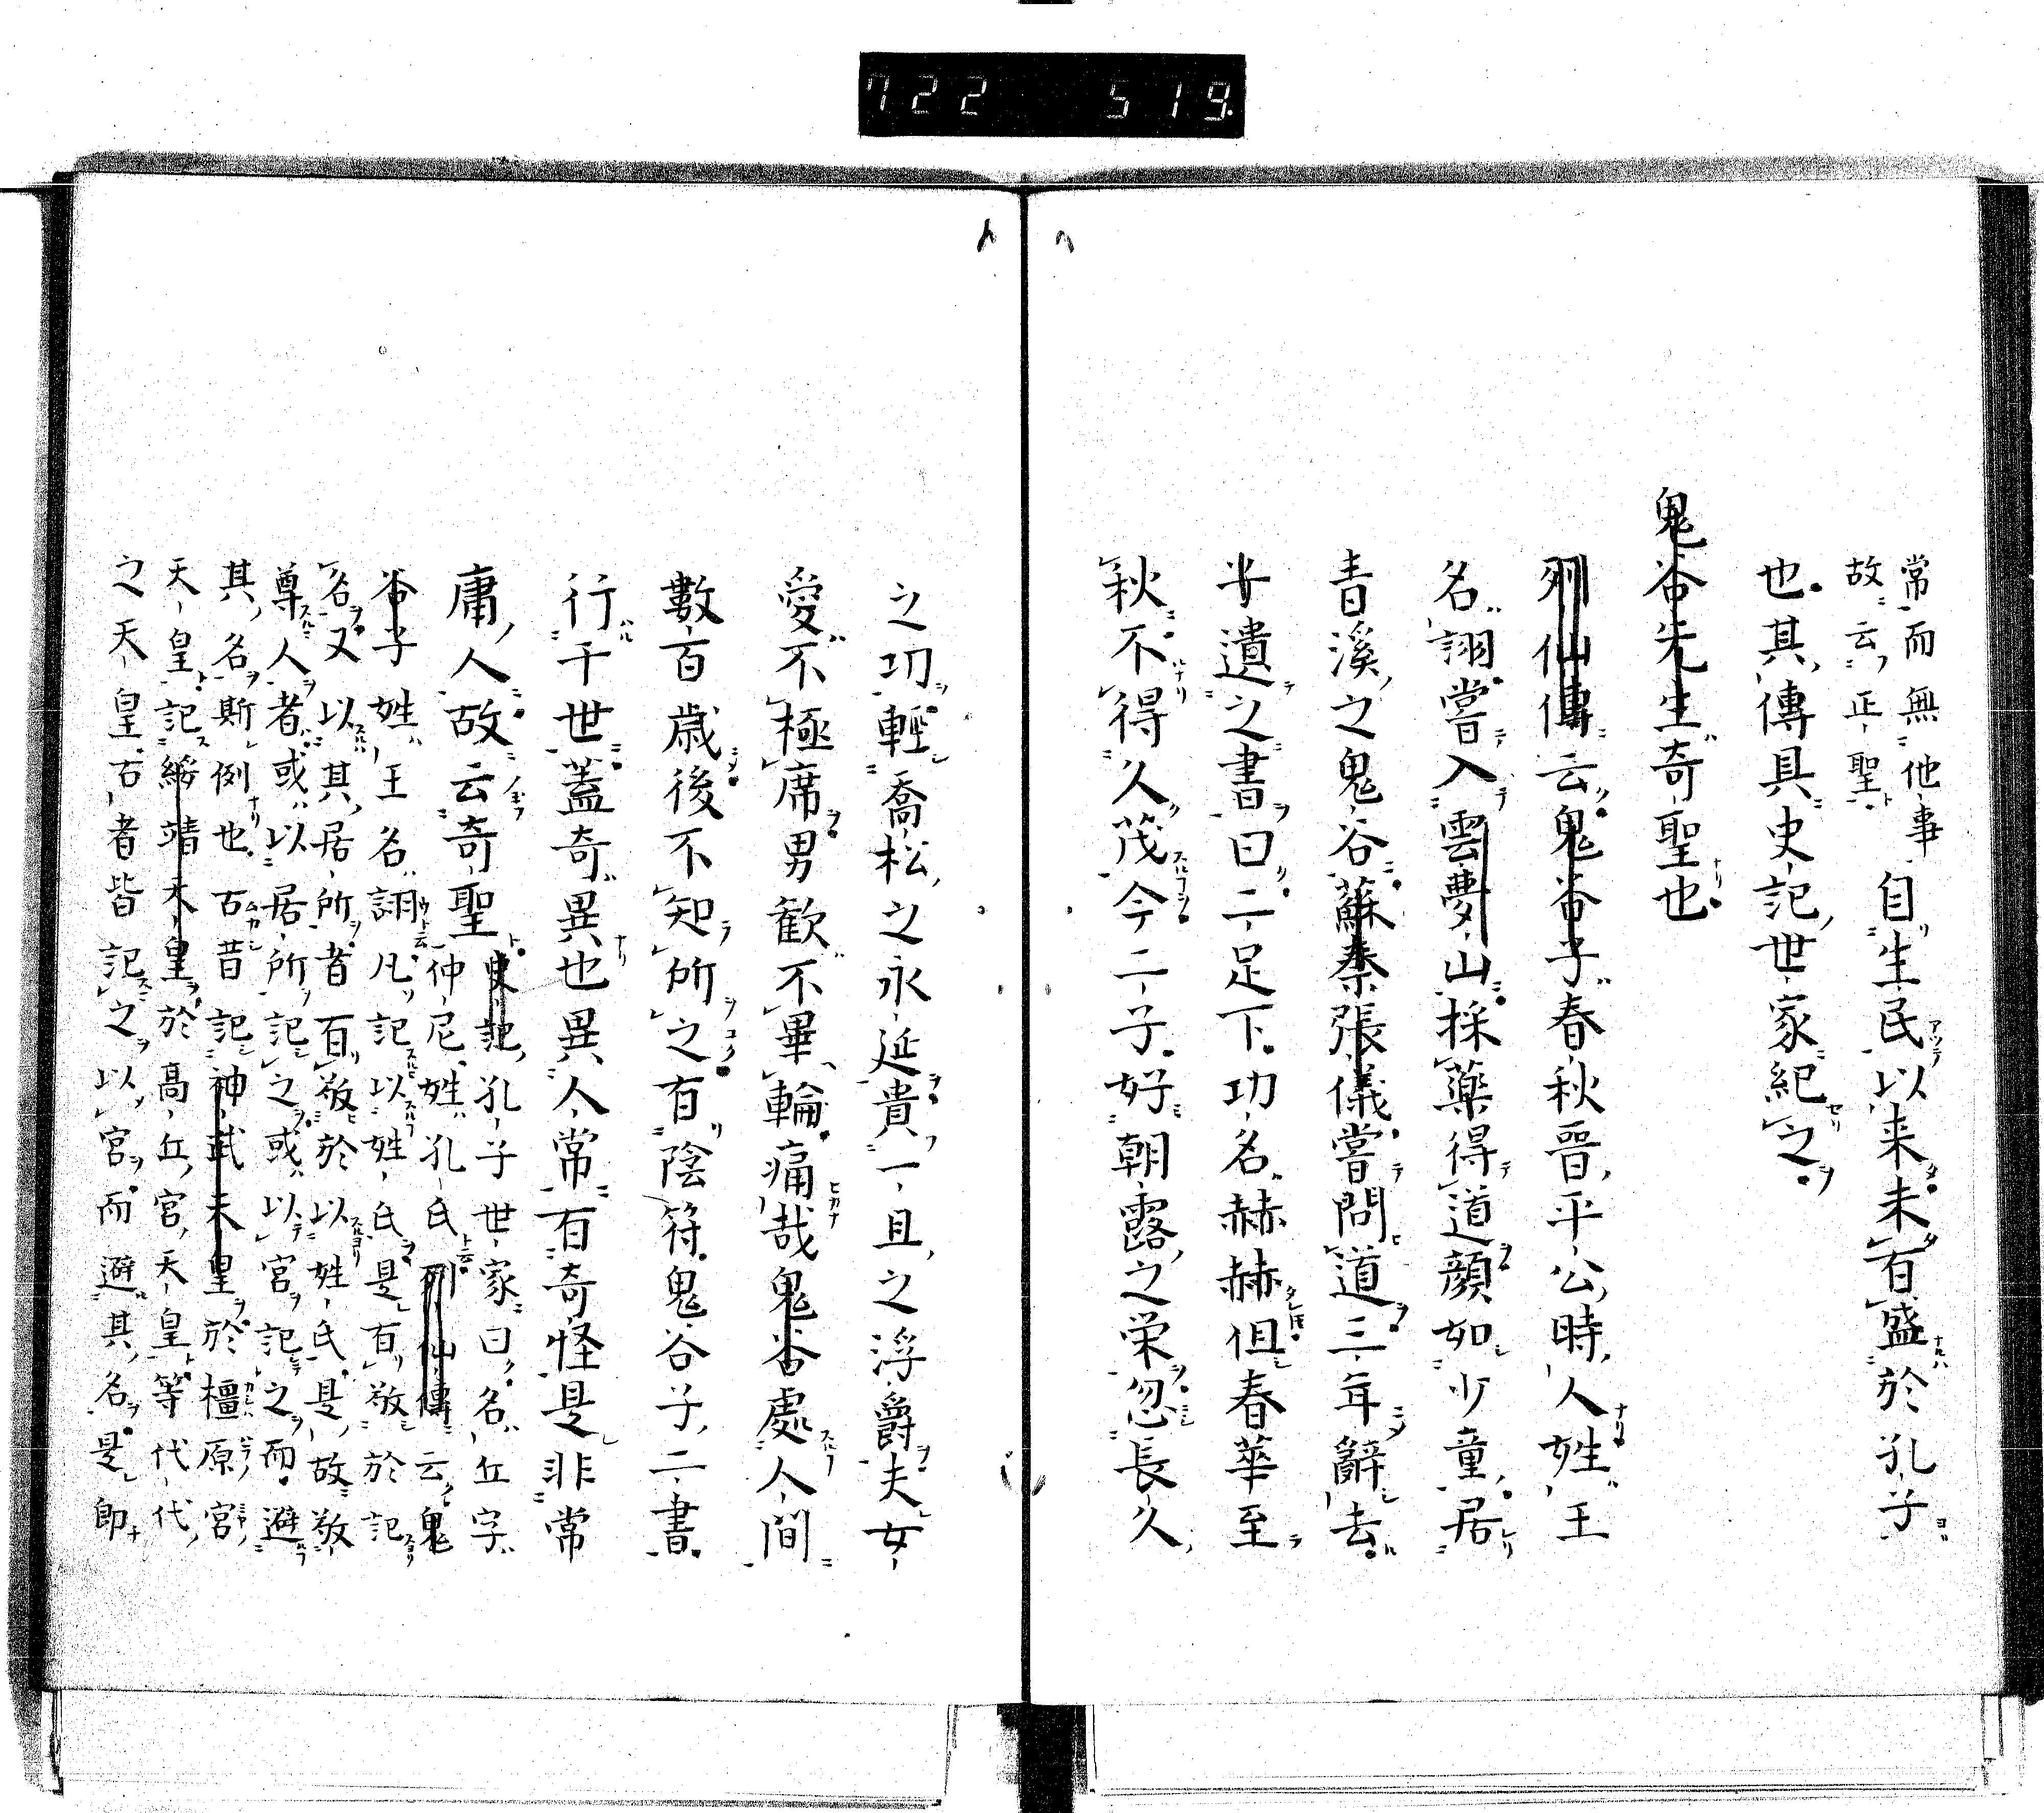 722 519
常而無他事
故云正聖 自生民以来未有盛於孔子
也其傳具史記世家紀之
鬼谷先生奇聖也
列仙傳云鬼谷子春秋晋平公時人姓王
名詡嘗入雲夢山採藥得道顔如少童居
青溪之鬼谷蘇秦張儀嘗問道三年辭去
子遺之書曰二足下功名赫赫但春華至
秋不得久茂今二子好朝露之栄忽長久
之功輕喬松之永延貴一旦之浮爵夫女
愛不極席男歓不畢輪痛哉鬼谷處人間
數百歳後不知所之有陰符鬼谷子二書
行于世蓋奇異也異人常有奇怪是非常
庸人故云奇聖
史記孔子世家曰名丘字
仲尼姓孔氏列仙傳云鬼
谷子姓王名詡凡記以姓氏是有敬於記
名又以其居所者有敬於以姓氏是故敬
尊人者或以居所記之或以宮記之而避
其名斯例也古昔記神武天皇於橿原宮
天皇記綏靖天皇於高丘宮天皇等代代
之天皇古者皆記之以宮而避其名是即